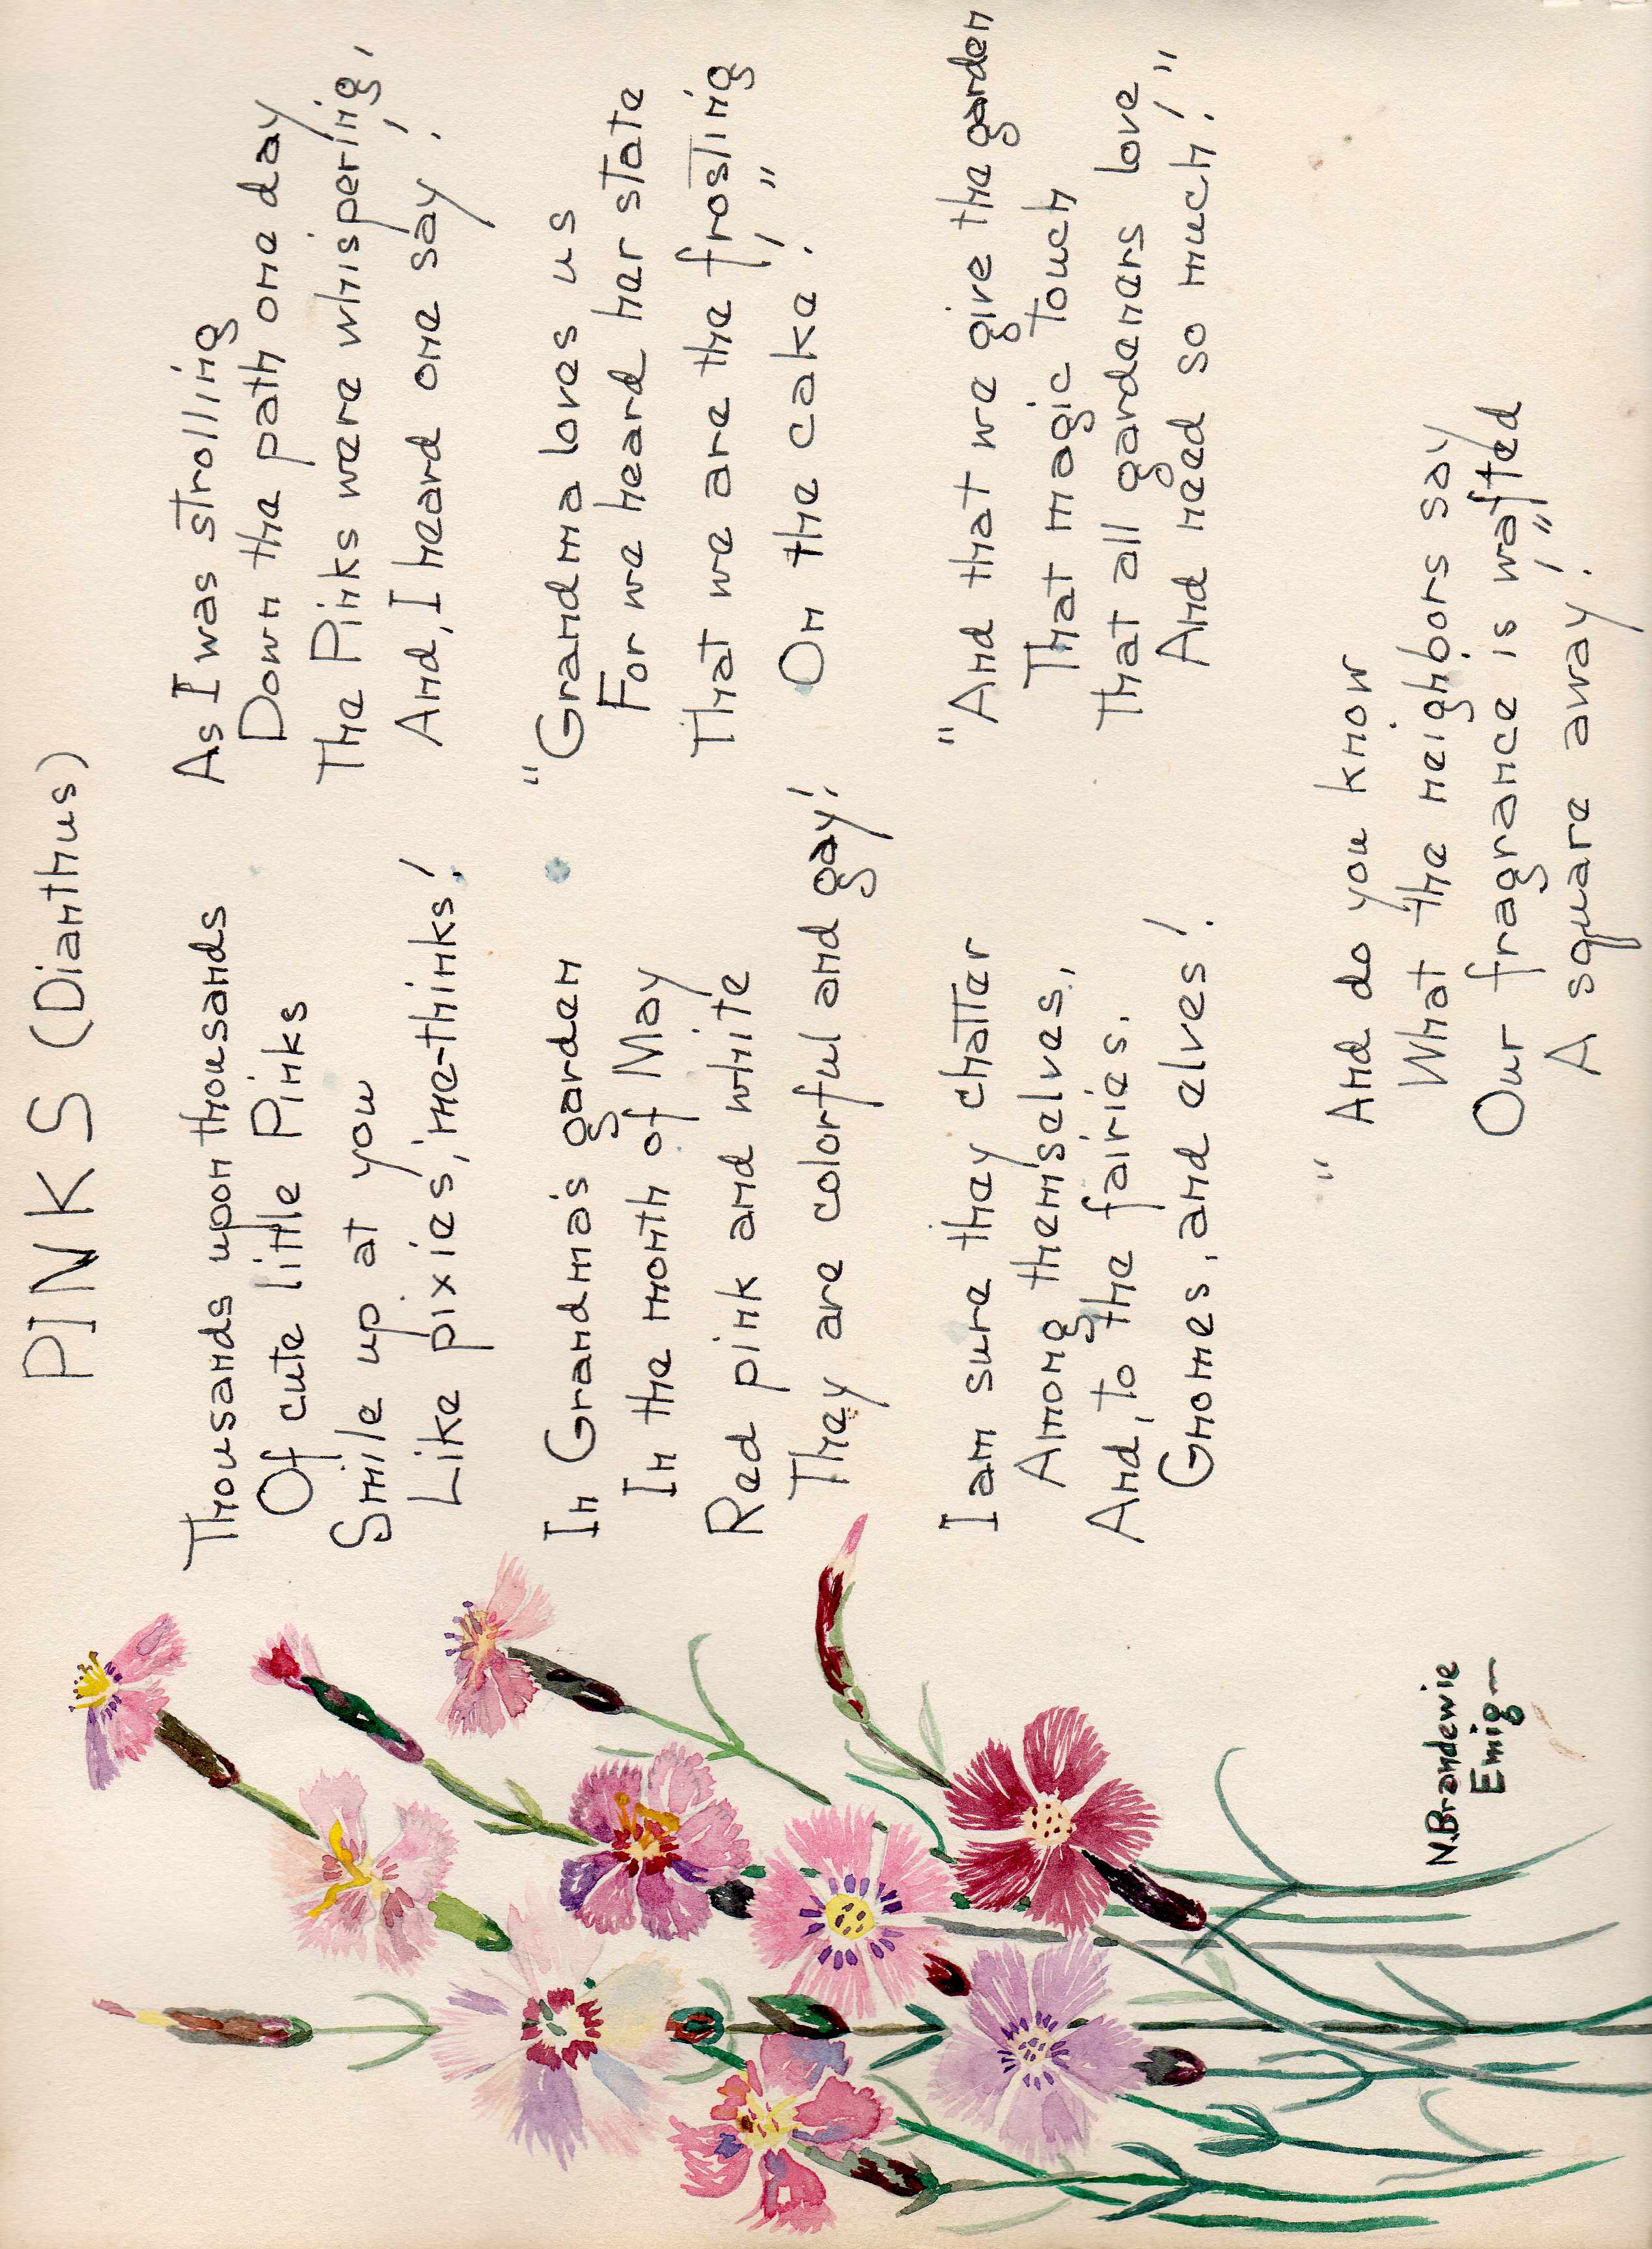 PINKS (Dianthus)
Thousands upon thousands
Of cute little Pinks
Smile up at you
Like pixies, me-thinks!
In Grandma's garden
In the month of May
Red pink and white
They are colorful and gay!
I am sure they chatter
Among themselves,
And, to the fairies.
Gnomes, and elves!
As I was strolling
Down the path one day
The Pinks were whispering,
And, I heard one say!
"Grandma loves us
For we heard her state
That we are the frosting
On the cake!"
"And that we give the garden
That magic touch
That all gardeners love
And need so much!"
"And do you know
What the neighbors say
Our fragrance is wafted
A square away!"
N. Brandewie
Emig